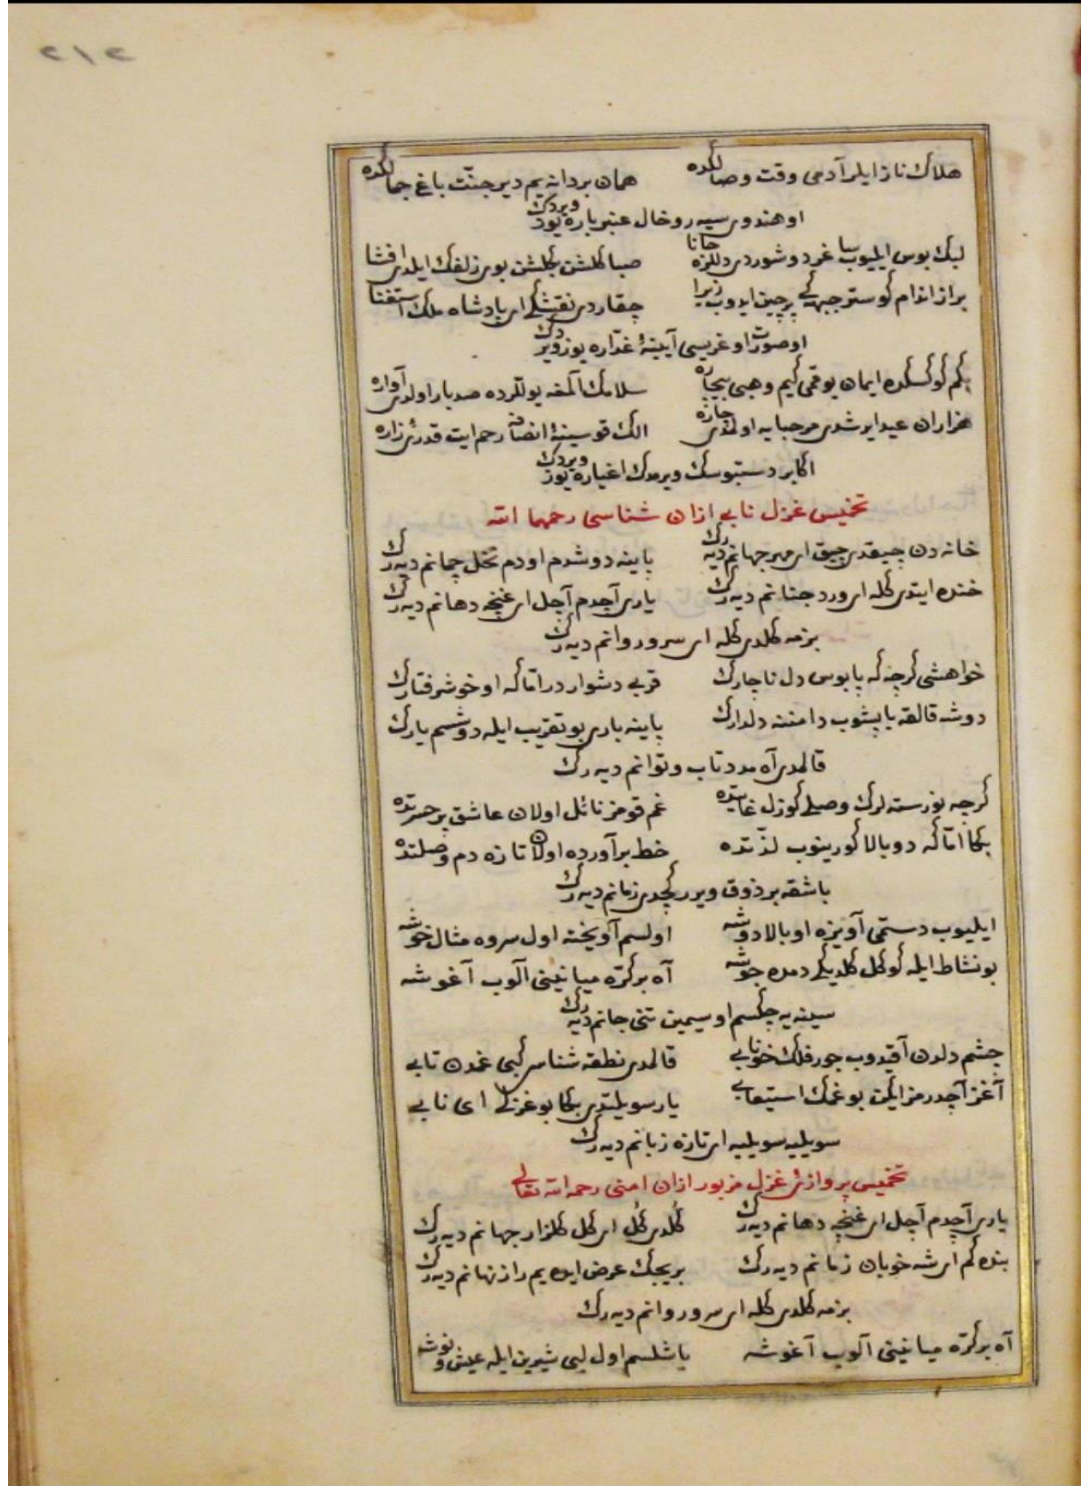 ٢١٢
هلاك ناز ايلر آدمى وقت وصالكده همان بر دانه يم دير جنّت باغ جمالكده
او هندوى سيه رو خال عنبر باره يوز ويردك
لبك بوس ايليوب سا غرد دوشوردى دللره جانا صبا كلشن بكلشن بوى زلفك ايلدى افشا
براز اندام كوستر جبهه كى پرچين ايدوب زيرا چقاردى نقشكى اى پادشاه ملك استغنا
او صورت اوغريسى آيينهٔ غدّاره يوز ويردك
كوكلكده ايمان يوقمى كيم وهبى بيچاره سلامك آلمغه يوللرده صد بار اولدى آواره
هزاران عيد ايرشدى مرحبايه اولمدى چاره الك قو سينهٔ انصافه رحم ايت قدرئ زاره
اكابر دستبوسك ويرمدك اغياره يوز ويردك
تخميس غزل نابى ازان شناسى رحمهما الله
خانه دن چيقدى چيق اى مهر جهانم ديه رك پاينه دوشدم اودم نخل چمانم ديه رك
خنده ايتدى كله اى ورد جنانم ديه رك يارى آچدم آچل اى غنچه دهانم ديه رك
بزمه كلدى كله اى سرو روانم ديه رك
خواهشى كرچه كه پابوس دل ناچارك قربى دشوار در امّا كه او خوش رفتارك
دوشه قالقه ياپشوب دامننه دلدارك پاينه بارى بو تقريب ايله دوشسم يارك
قالمدى آه مدد تاب و توانم ديه رك
كرچه نورسته لرك وصلى كوزل غايتده غم قومز نائل اولان عاشق پر حسرتده
بكا امّا كه دوبالا كورينوب لذّتده خط برآورده اولان تازه دم وصلتده
باشقه بر ذوق ويرر كچدى زمانم ديه رك
ايليوب دستمى آويزه او بالا دوشه اولسم آويخته اول سروه مثال خوشه
بو نشاط ايله كوكل كلديكى دمده جوشه آه بر كرّه ميانينى آلوب آغوشه
سينه يه چكسم او سيمين تنى جانم ديه رك
چشم دلدن آقيدوب جور فلك خونابى قالمدى نطقه شناسى كبى غمدن تابى
آغز آچدرمز ايكن بو غمك استيعابى يار سويلتدى بكا بو غزلى اى نابى
سويليه سويليه اى تازه زبانم ديه رك
تخميس پروازئ غزل مزبور ازان امنى رحمه الله تعالى
يارى آچدم آچل اى غنچه دهانم ديه رك كلدى كل اى كل كلزار جهانم ديه رك
بنده كم اى شه خوبان زمانم ديه رك بريجك عرض ايده يم راز نهانم ديه رك
بزمه كلدى كله اى سرو روانم ديه رك
آه بر كرّه ميانينى آلوب آغوشه ياشلسم اول لبى شيرين ايله عيش و نوشه